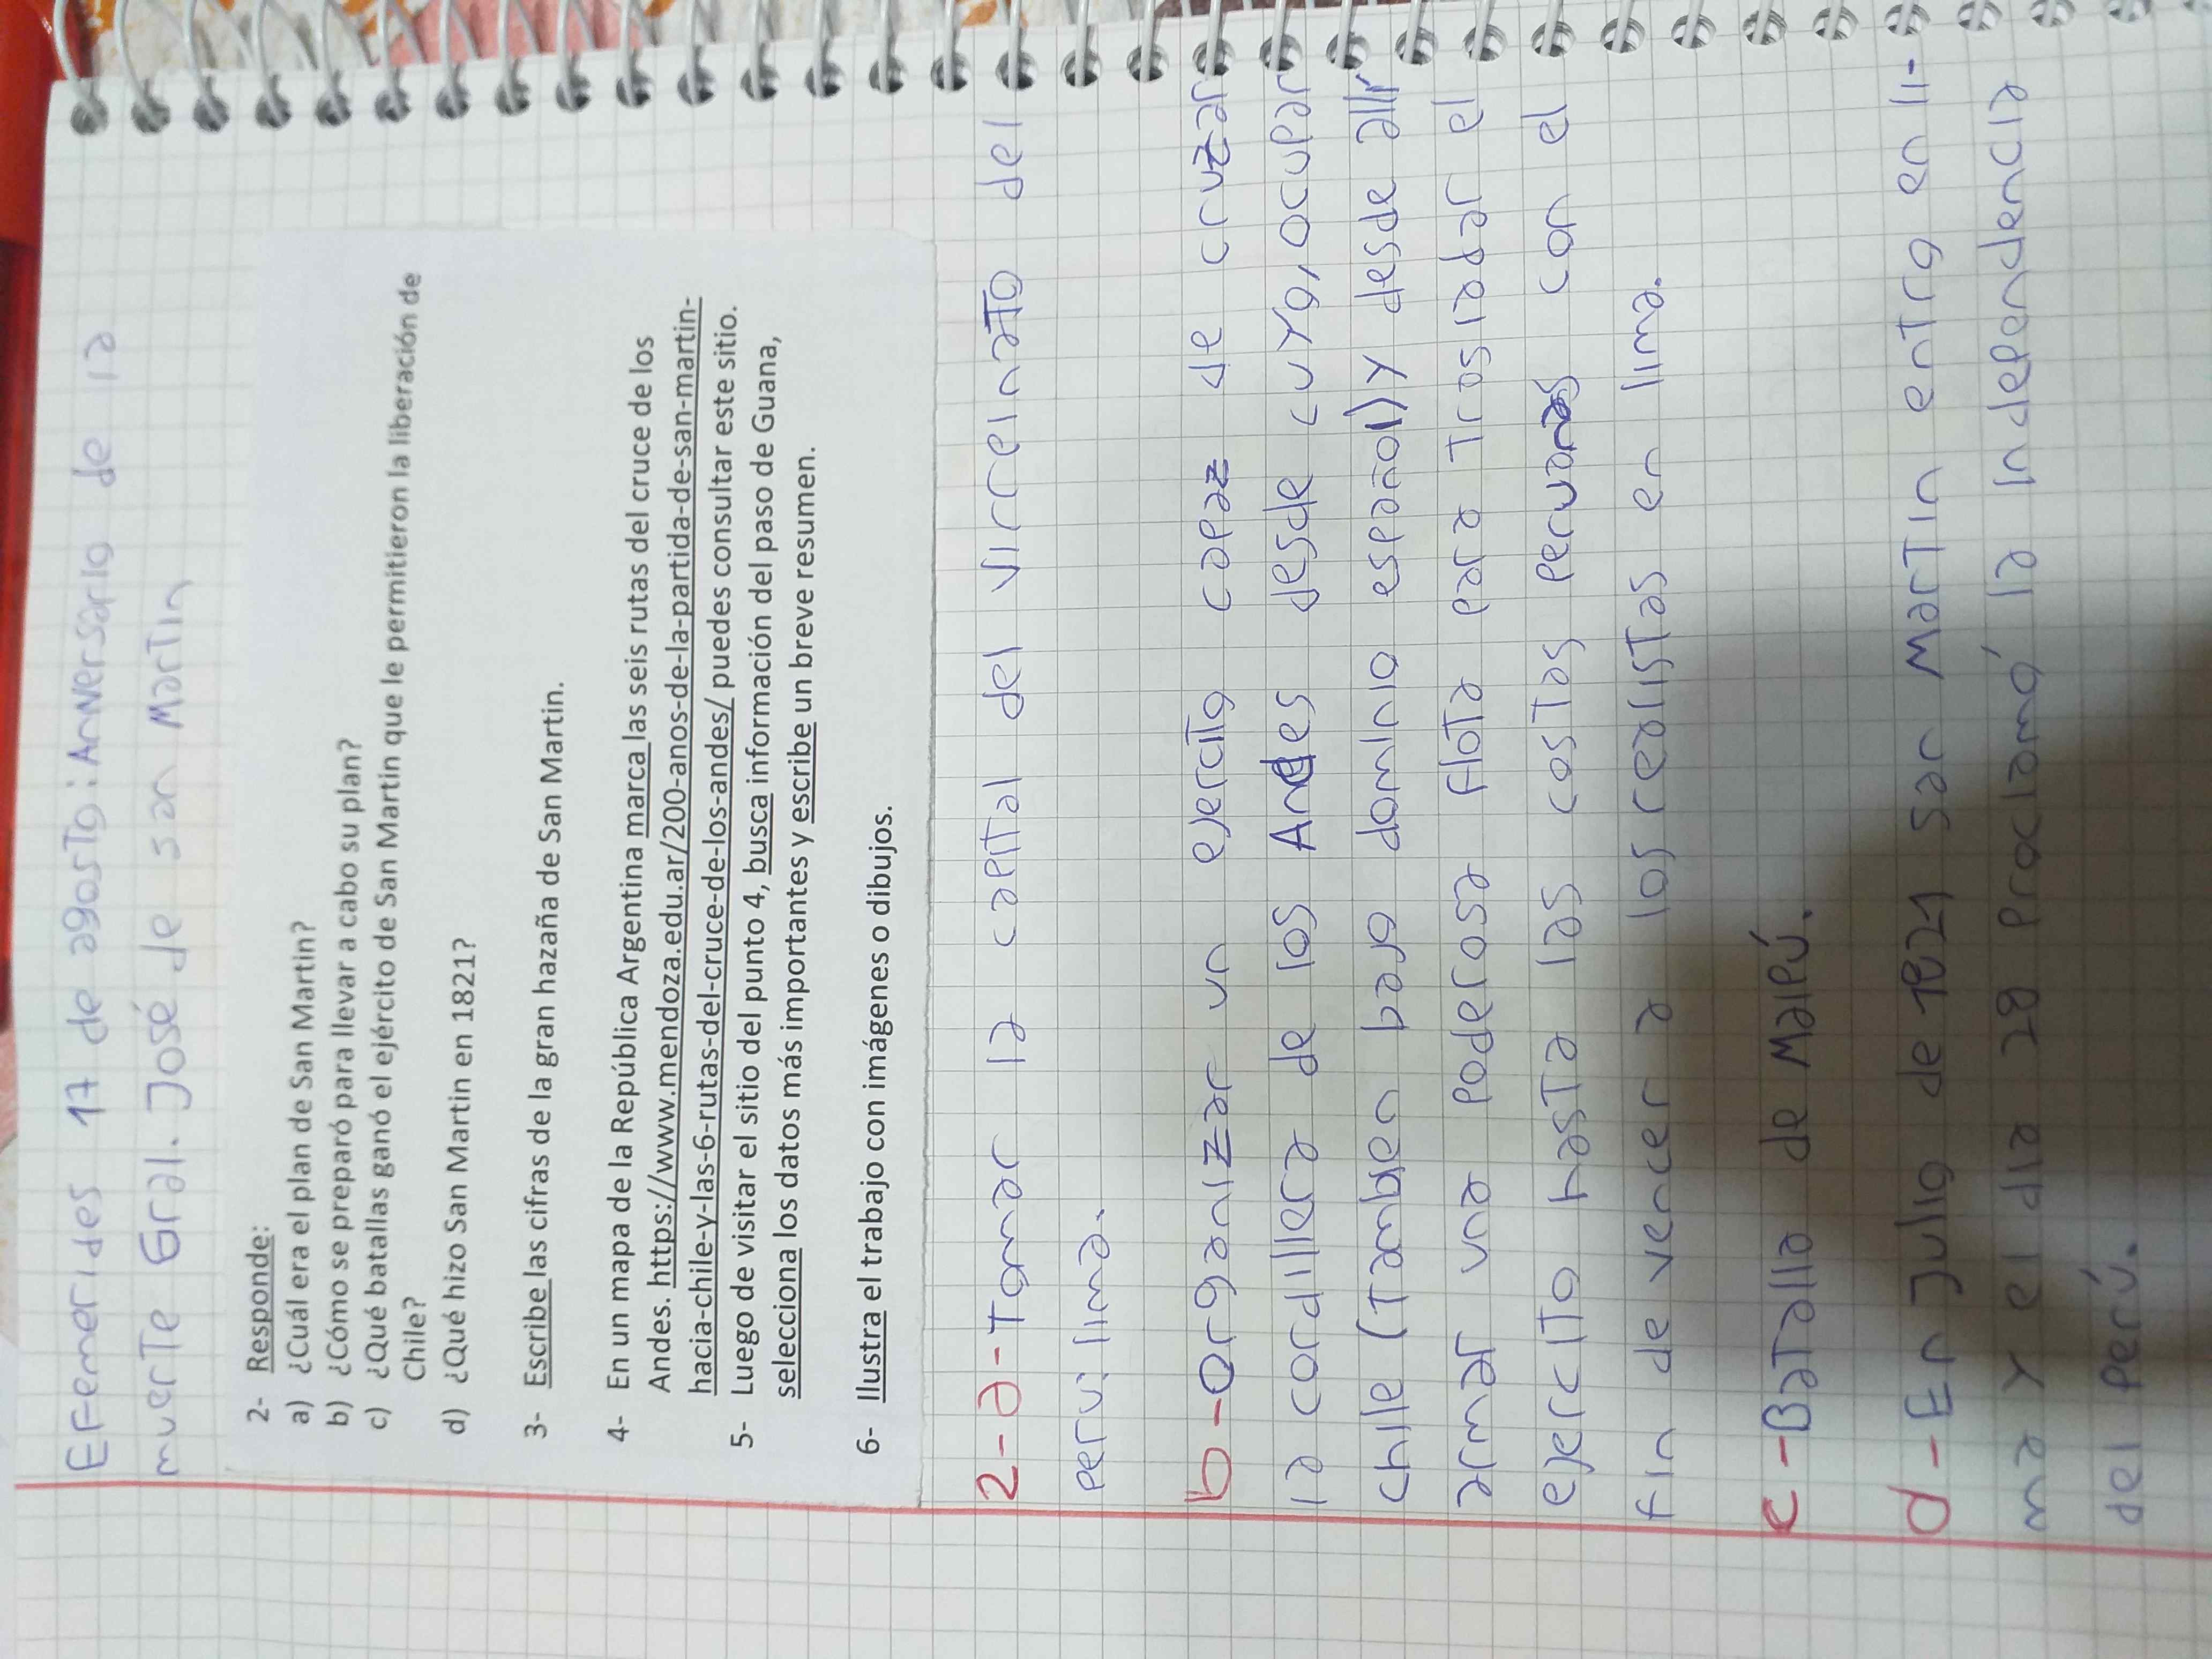 Efemerides 17 de agosto: Anversario de la
muerte Gral. José de san Martin
2- Responde:
a) ¿Cuál era el plan de San Martin?
b) ¿Cómo se preparó para llevar a cabo su plan?
c) ¿Qué batallas ganó el ejército de San Martin que le permitieron la liberación de
Chile?
d) ¿Qué hizo San Martin en 1821?
3- Escribe las cifras de la gran hazaña de San Martin.
4- En un mapa de la República Argentina marca las seis rutas del cruce de los
Andes. https://www.mendoza.edu.ar/200-anos-de-la-partida-de-san-martin-
hacia-chile-y-las-6-rutas-del-cruce-de-los-andes/ puedes consultar este sitio.
5- Luego de visitar el sitio del punto 4, busca información del paso de Guana,
selecciona los datos más importantes y escribe un breve resumen.
6- Ilustra el trabajo con imágenes o dibujos.
2-a-Tomar la capital del virreinato del
perú: lima.
b-organizar un ejercito capaz de cruzar
la cordillera de los Andes desde cuyo, ocupar
chile (Tambien bajo dominio español) y desde allí
armar una poderosa flota para trasladar el
ejercito hasta las costas peruanas con el
fin de vencer a los realistas en lima.
c-Batalla de Maipú.
d-En julio de 1821 san Martin entro en li-
ma y el dia 28 proclamó la independencia
del perú.